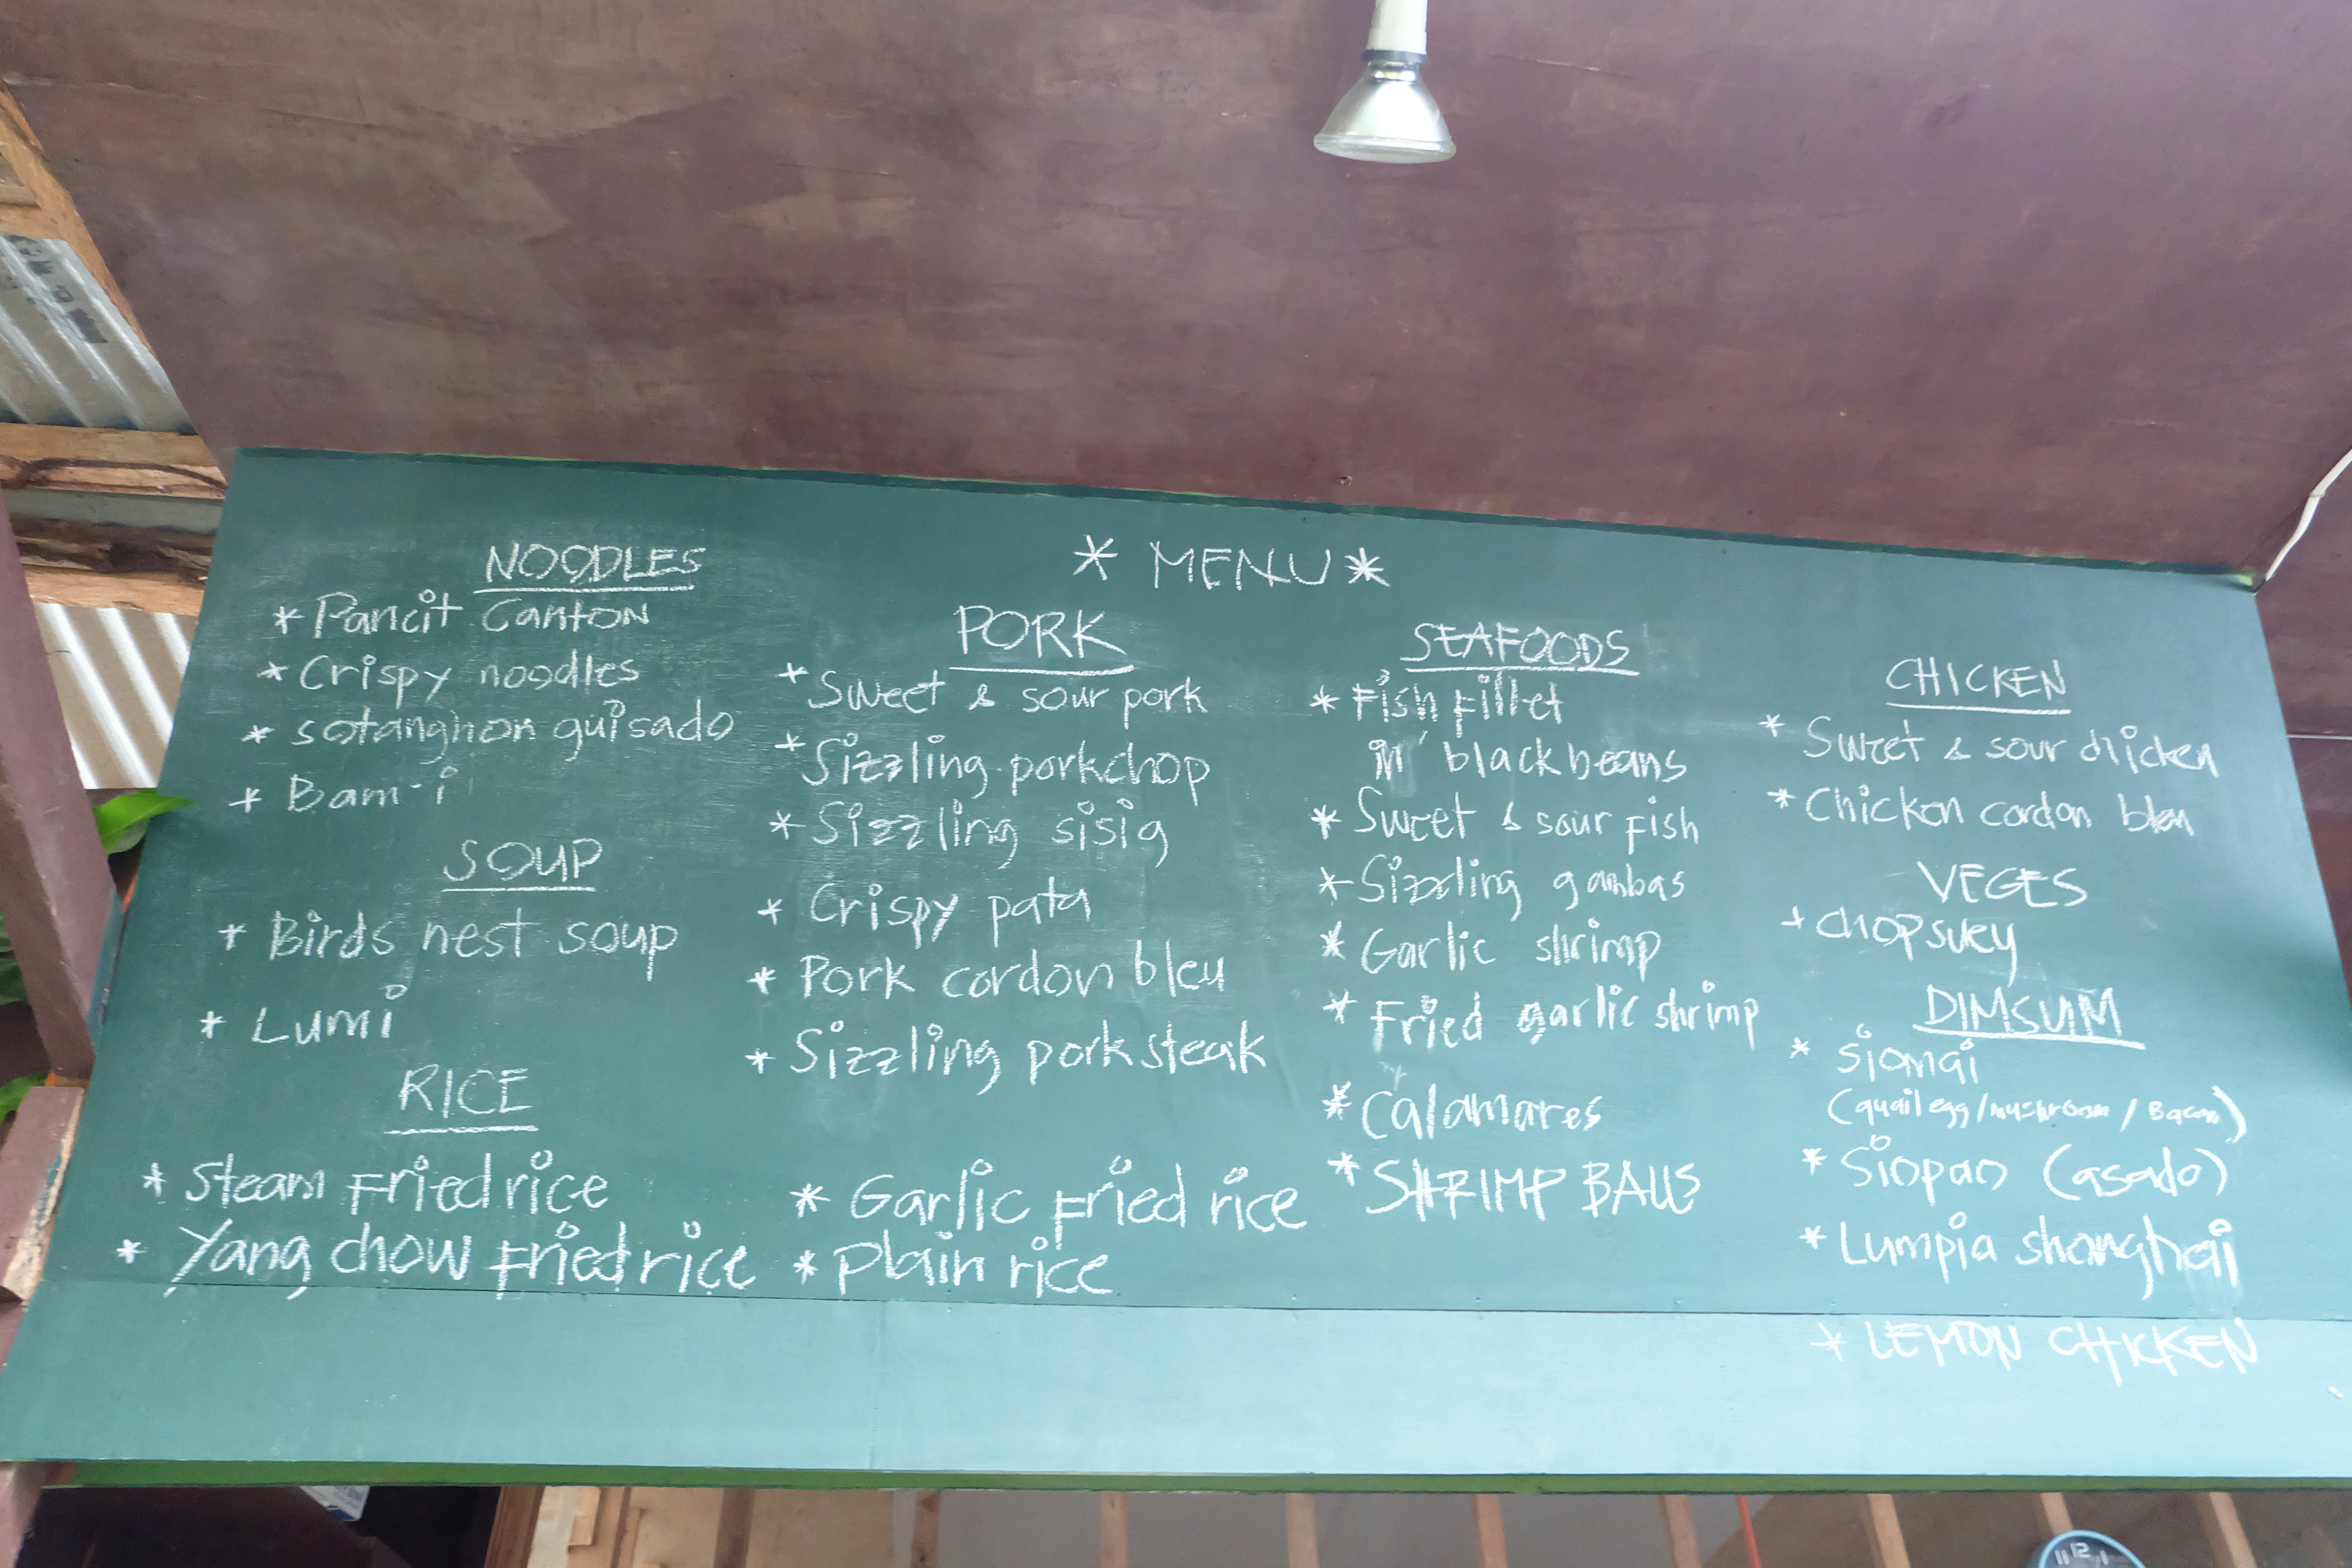 * MENU *
NOODLES
* Pancit Canton
* Crispy noodles
* sotanghon guisado
* Bam-i
SOUP
* Birds nest soup
* Lumi
RICE
* Steam Fried rice
* Yang chow Fried rice
* Garlic Fried rice
* Plain rice
PORK
* Sweet & sour pork
* Sizzling porkchop
* Sizzling sisig
* Crispy pata
* Pork cordon bleu
* Sizzling pork steak
SEAFOODS
* Fish Fillet
in' black beans
* Sweet & sour Fish
* Sizzling gambas
* Garlic shrimp
* Fried garlic shrimp
* Calamares
* SHRIMP BALLS
CHICKEN
* Sweet & sour chicken
* Chicken cordon bleu
VEGES
* Chopsuey
DIMSUM
* Siomai
(quail egg / mushroom / Bacon)
* Siopao (asado)
* Lumpia shanghai
* LEMON CHICKEN
12